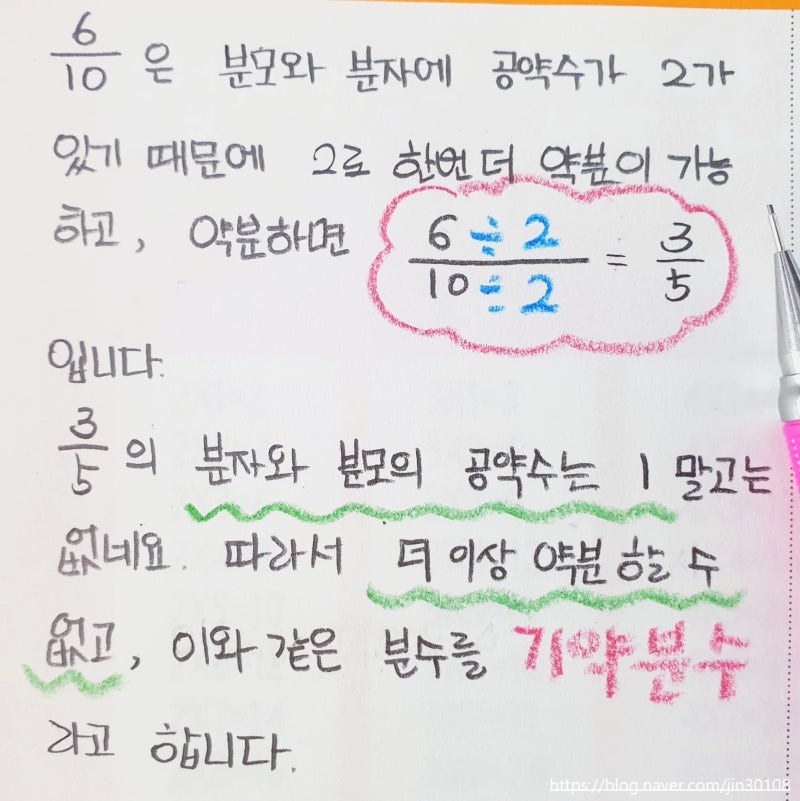 6/10 은 분모와 분자에 공약수가 2가
있기 때문에 2로 한번 더 약분이 가능
하고, 약분하면 6÷2/10÷2 = 3/5
입니다.
3/5 의 분자와 분모의 공약수는 1 말고는
없네요. 따라서 더 이상 약분 할 수
없고, 이와 같은 분수를 기약분수
라고 합니다.
https://blog.naver.com/jin30108